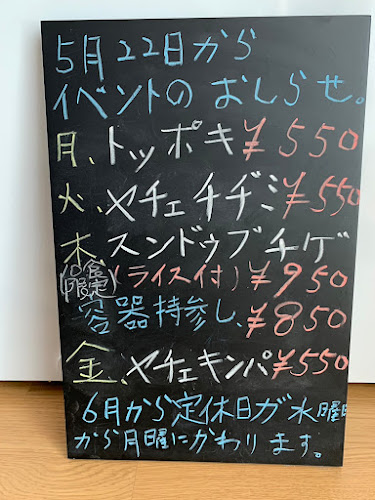 5月22日から
イベントの おしらせ。
月、トッポキ ¥550
火、ヤチェチヂミ ¥550
木 スンドゥブチゲ
10食限定 (ライス付) ¥950
容器持参し、¥850
金、ヤチェキンパ ¥550
6月から定休日が水曜日
から月曜にかわります。